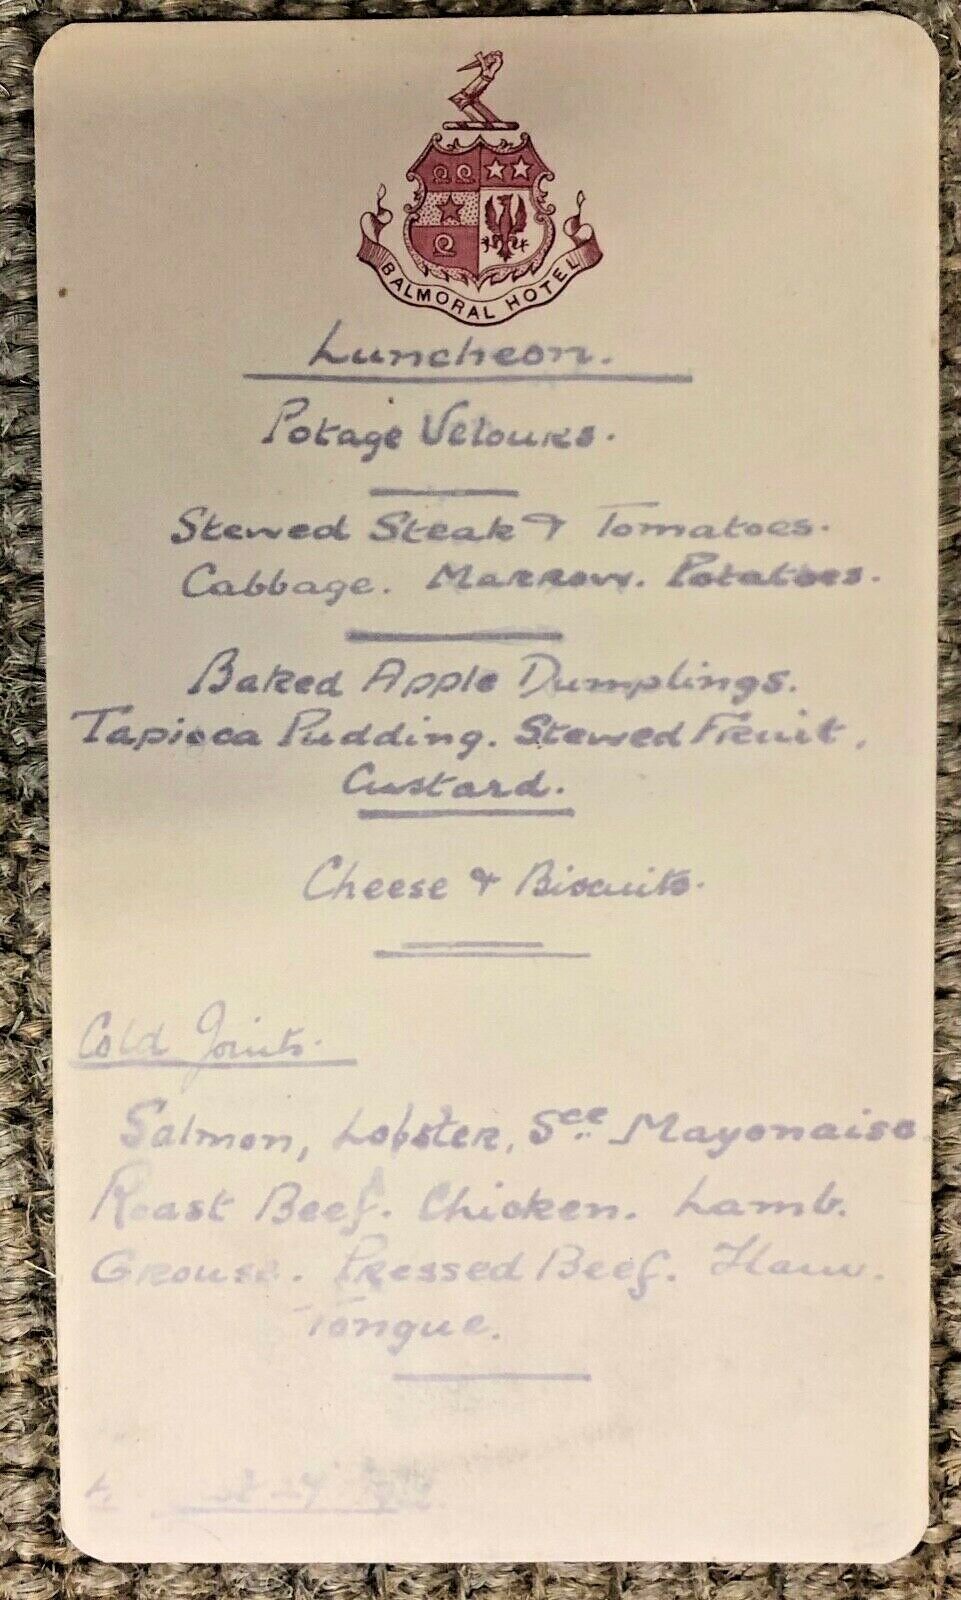 BALMORAL HOTEL
Luncheon.
Potage Velours.
Stewed Steak & Tomatoes.
Cabbage. Marrow. Potatoes.
Baked Apple Dumplings.
Tapioca Pudding. Stewed Fruit,
Custard.
Cheese & Biscuits.
Cold Joints.
Salmon, Lobster, Sce Mayonaise
Roast Beef. Chicken. Lamb.
Grouse. Pressed Beef. Ham.
Tongue.